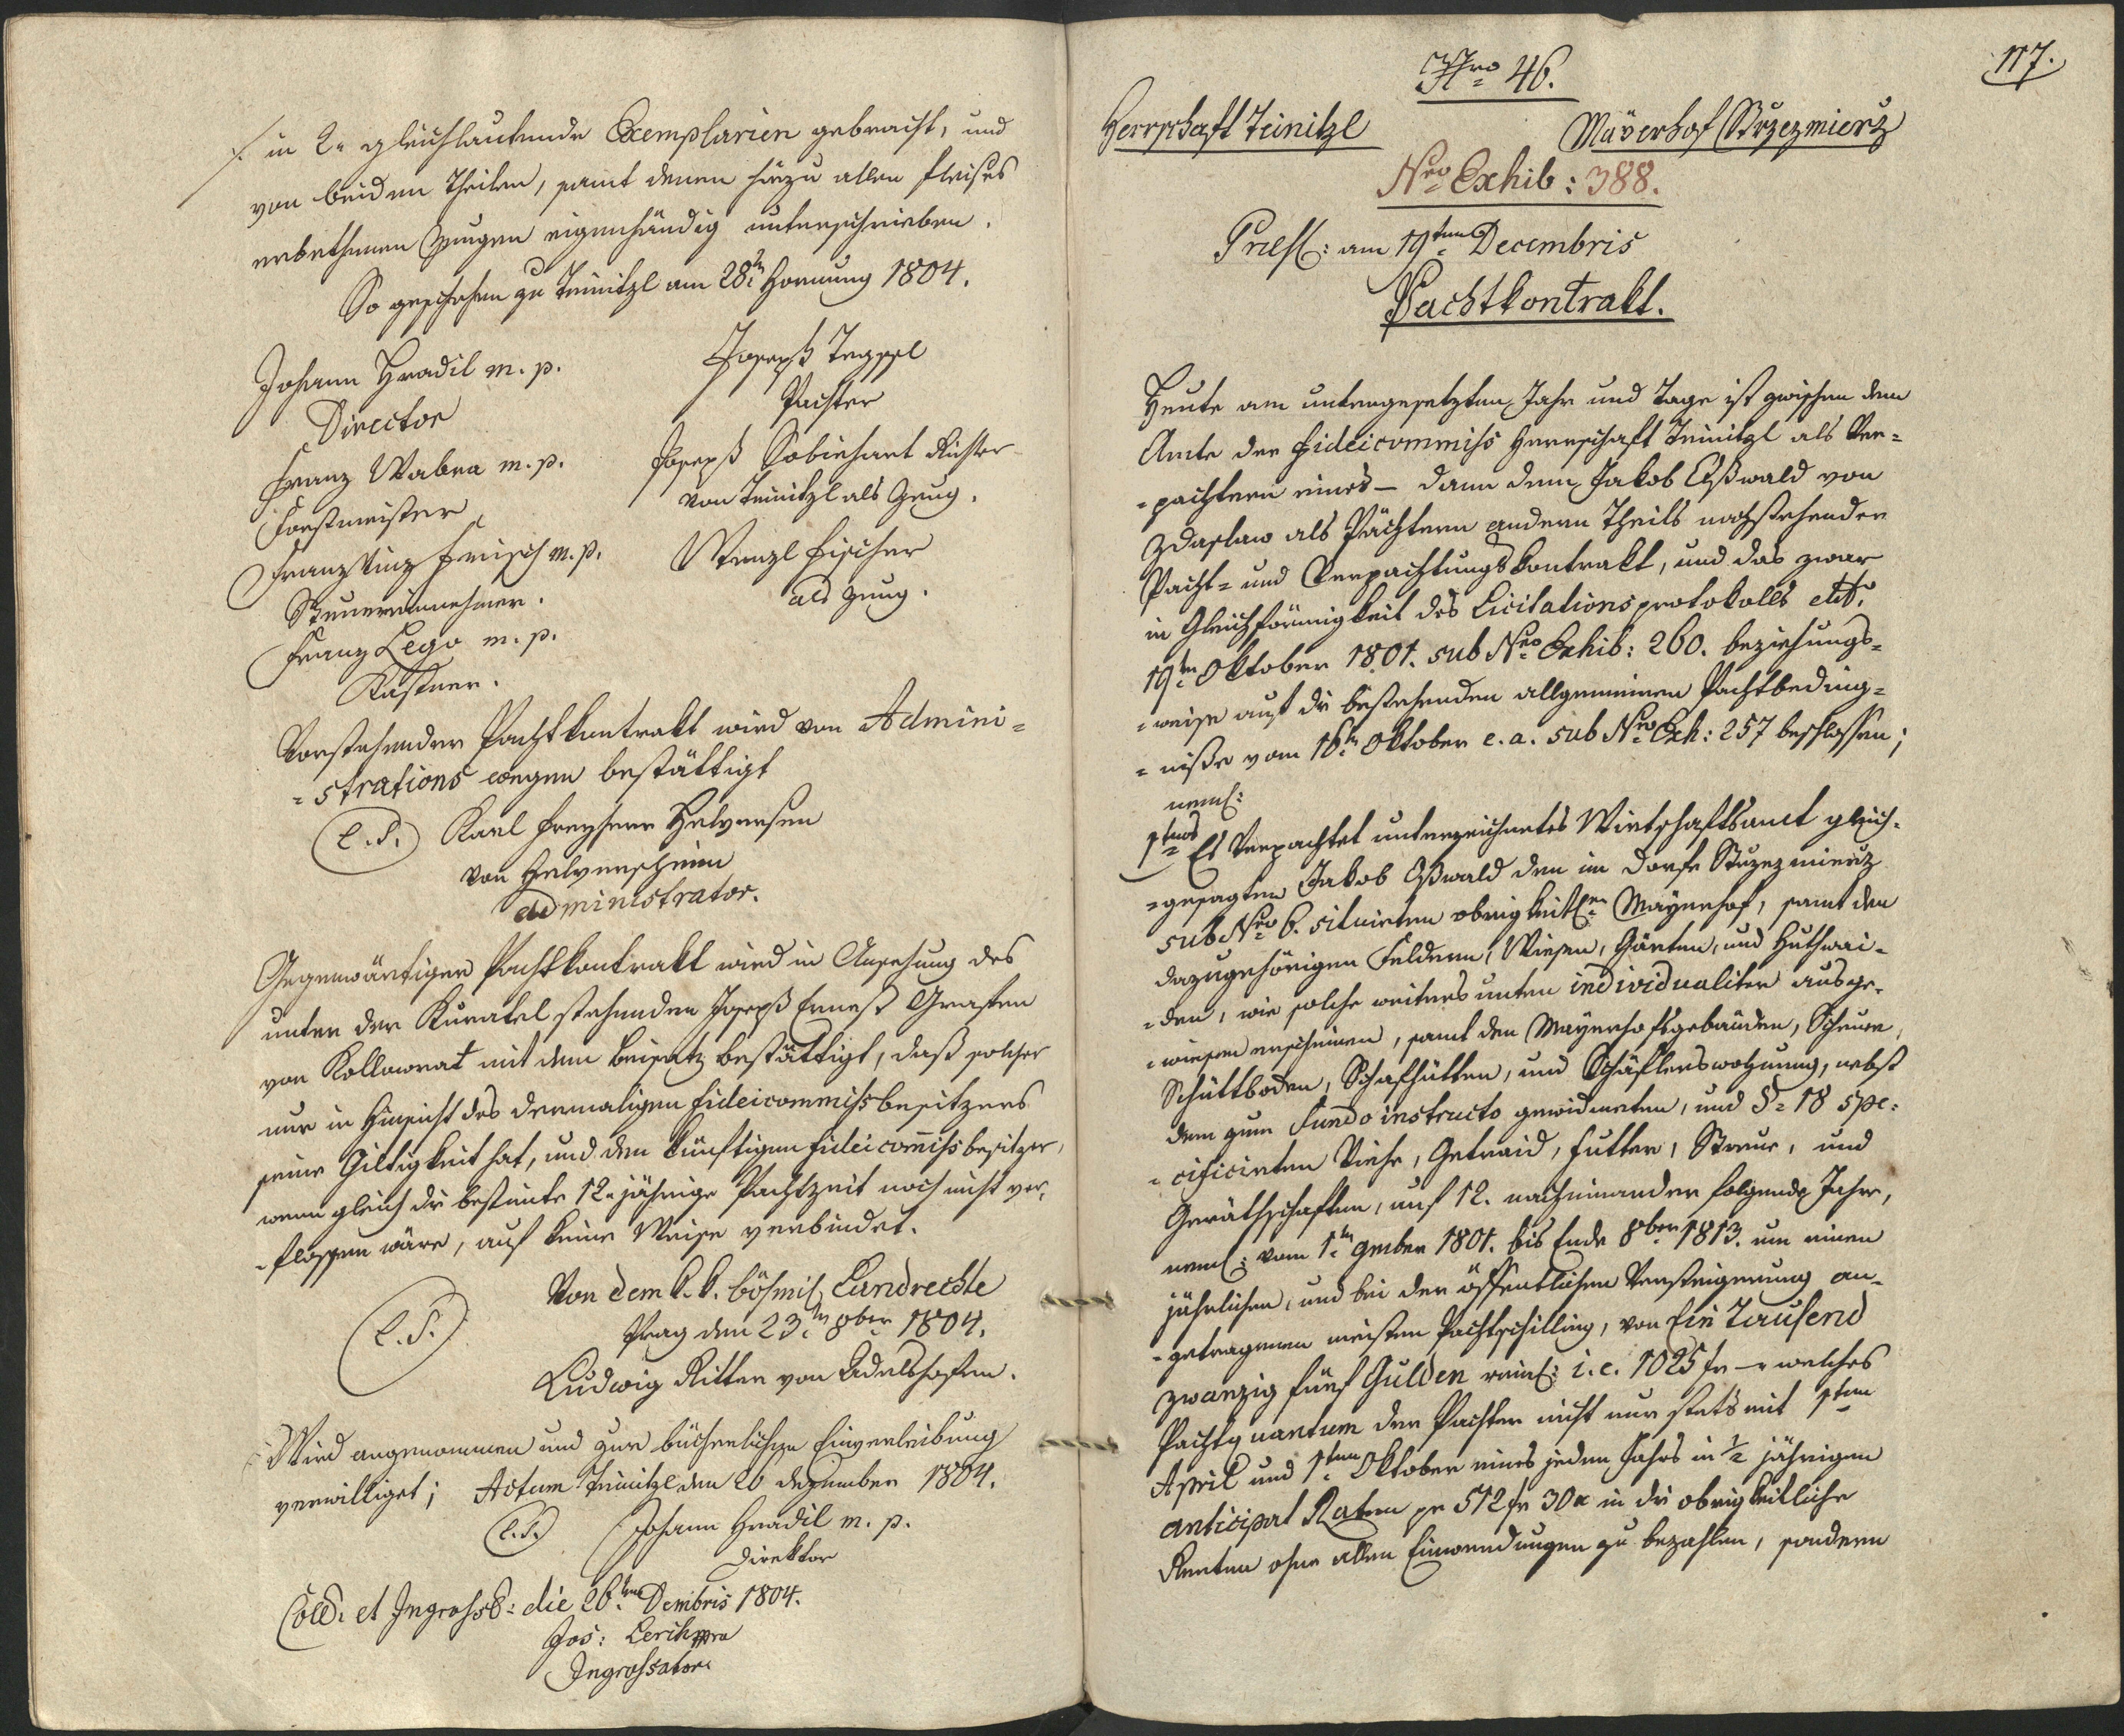 /. in 2 gleichlautende Exemplarien gebracht, und
von beiden Theilen, samt denen hiezu allen fleißes
erbethenen Zeugen eigenhändig unterschrieben.
So geschehen zu Teinitzl am 28tn Hornung 1804.
Johann Hradil m. p.
Director
Franz Wabra m. p.
Forstmeister
Franz Vinz Frisch m. p.
Steuereinnehmer.
Franz Lego m. p.
Kastner.
Joseph
Pachter
Joseph Sobiehart Richter
von Teinitzl als Zeug.
Wenzl Fischer
als Zeug.
Vorstehender Pachtkontrakt wird von Admini=
=strations wegen bestättigt
(L.S.) Karl Freyherr Helversen
von Helversheim
Administrator.
Gegenwärtiger Pachtkontrakt wird in Ansehung des
unter der Kuratel stehenden Joseph Ernest Grafen
von Kollowrat mit dem Beisatz bestättigt, daß solcher
nur in Hinsicht des dermaligen Fideicommißbesitzers
seine Giltigkeit hat, und den künftigen Fideicom̄ißbesitzer,
wenn gleich die bestimte 12=jährige Pachtzeit noch nicht ver=
=flossen wäre, auf keine Weise verbindet.
Von dem k. k. böhmisch Landrechte
(L.S.)
Prag den 23tn 8ber 1804.
Ludwig Ritter von Adelshofen.
Wird angenommen und zur bücherlichen Einverleibung
verwilliget; Actum Teinitzl den 20 dezember 1804.
(L.S.) Johann Hradil m. p.
Direktor
Coll: et Ingross: die 20ten Dembris 1804.
Jos:
Ingrossator
117.
Nro 46.
Herrschaft Teinitzl
Mayerhof Strzezmierz
Nro Exhib: 388.
Præs: am 19ten Decembris
Pachtkontrakt.
Heute am untengesetzten Jahr und Tage ist zwischen dem
Amte der Fideicommiß Herrschaft Teinitzl als Ver=
=pachtern eines – dann dem Jakob Oßwald von
Zdaslaw als Pächtern andern Theils nachstehender
Pacht= und Verpachtungskontrakt, und das zwar
in Gleichförmigkeit des Licitationsprotokolls dtto
19tn Oktober 1801. sub Nro Exhib: 260. beziehungs=
=weise auf die bestehenden allgemeinen Pachtbeding=
=niße vom 16tn Oktober e. a. sub Nro Exh: 257 beschlossen;
neml:
1tens Es Verpachtet unterzeichnetes Wirtschaftsamt gleich=
=gesagten Jakob Oßwald den im Dorfe Strzezmierz
sub Nro 6. situirten obrigkeitlen Mayerhof, samt den
dazugehörigen Feldern, Wiesen, Gärten, und Huthwai=
=den, wie solche weiters unten individualiter ausge=
=wiesen erscheinen, samt den Mayerhofsgebäuden, Scheuer,
Schüttboden, Schafhütten, und Schäflerswohnung, nebst
dem zum Fundo instructo gewidmeten, und §= 18 spe=
=cificirten Viehe, Getraid, Futter, Streue, und
Geräthschaften, auf 12. nacheinander folgende Jahre,
neml: vom 1tn 9mber 1801. bis Ende 8ber 1813. um einen
jährlichen, und bei der öffentlichen Versteigerung an=
=getragenen meisten Pachtschilling, von Ein Tausend
zwanzig fünf Gulden reinl: i. e. 1025 fr – welches
Pachtquantum der Pachter nicht nur stets mit 1ten
April und 1ten Oktober eines jeden Jahrs in ½ jährigen
anticipat Raten pr 512 fr 30 x in die obrigkeitliche
Renten ohne allen Einwendungen zu bezahlen, sondern